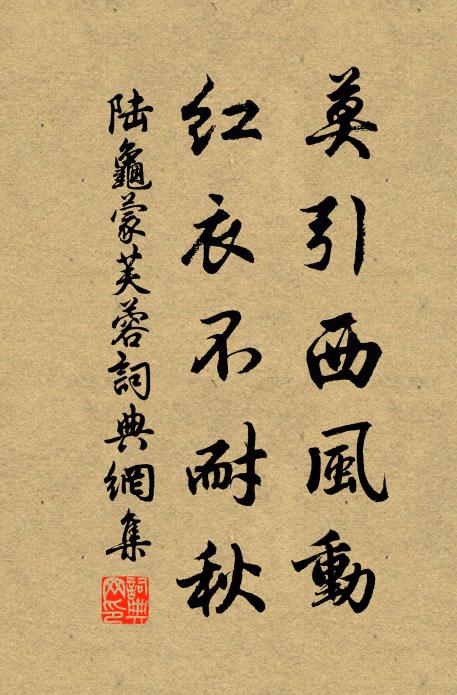 莫引西風動
紅衣不耐秋
陸龜蒙芙蓉詞典網集
詞典網印